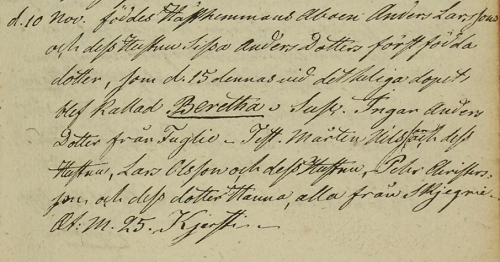 d. 10 Nov. föddes Håfhemmans Aboen Anders Larsson
och dess Hustru Sissa Anders Dotters först födda
dotter, som d. 15 dennas vid det heliga dopet
blef kallad Beretha. Susc. Ingar Anders
Dotter från Fuglie – Test. Mårten Nilsson och dess
Hustru, Lars Olsson och dess Hustru, Pehr Christers-
son och dess dotter Hanna, alla från Skjegrie.
Æt. M. 25. Kjersti.